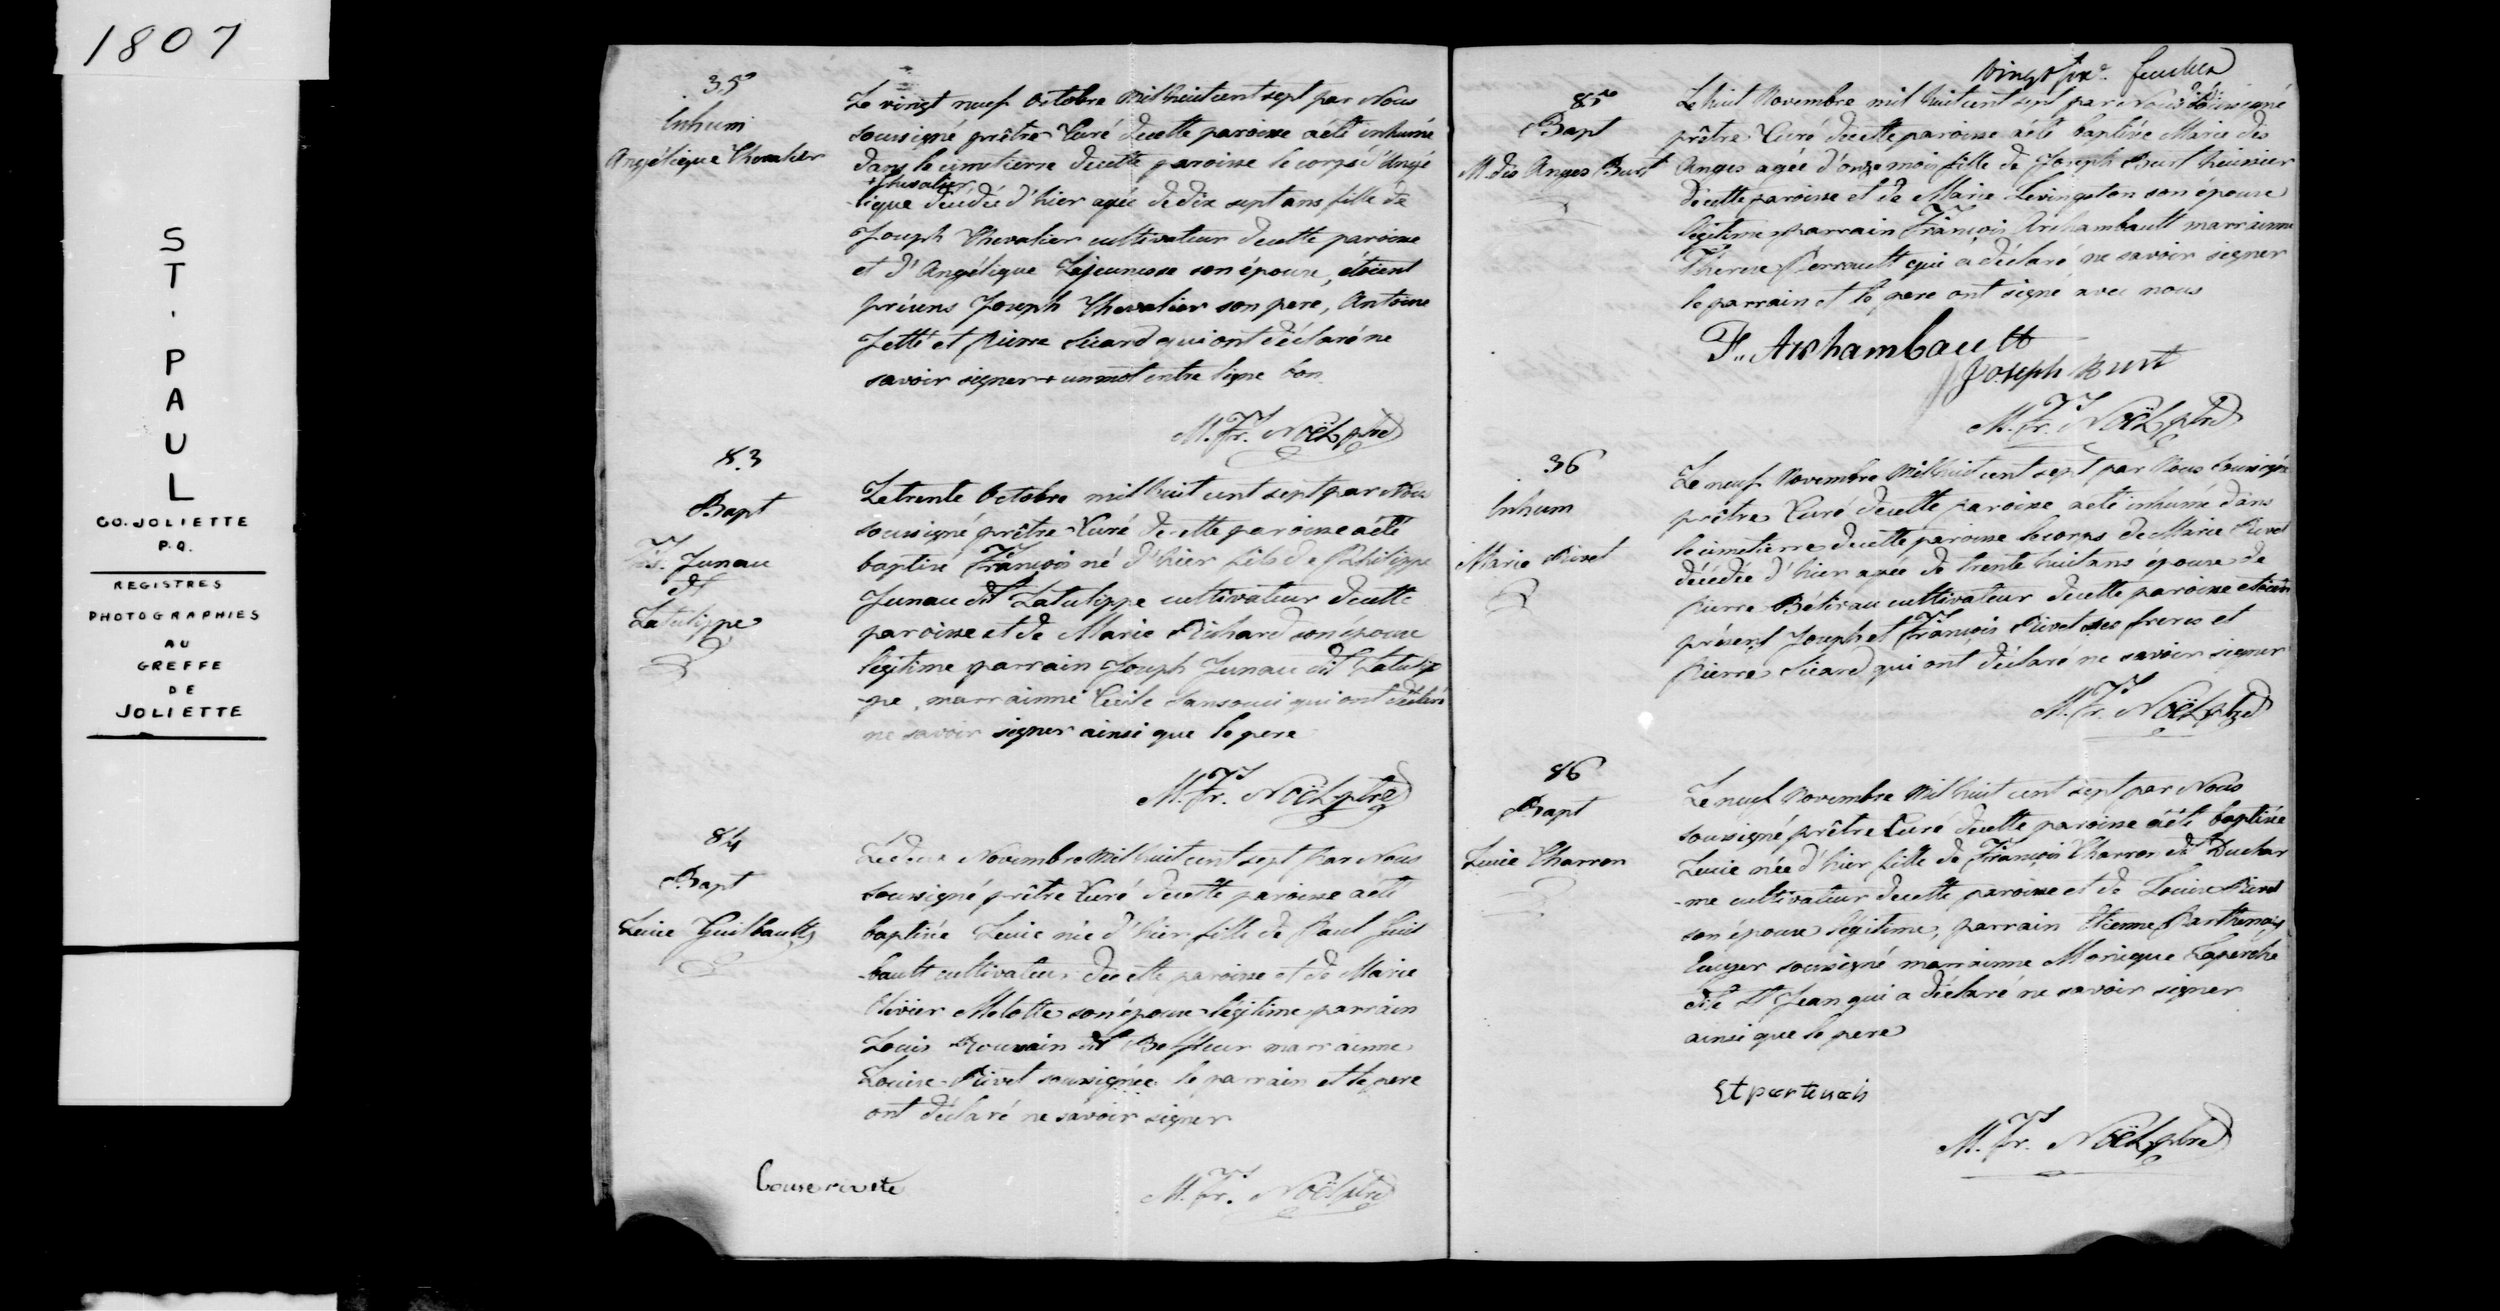 1807
ST. PAUL
CO. JOLIETTE
P.Q.
REGISTRES
PHOTOGRAPHIES
AU
GREFFE
DE
JOLIETTE
35e
Inhum
Angélique Chevalier
Le vingt neuf Octobre mil huit cent sept par Nous
soussigné prêtre Curé de cette paroisse a été inhumé
dans le cimetierre de cette paroisse le corps d'Angé
+ Chevalier
-lique décédée d'hier agée de dix sept ans fille de
Joseph Chevalier cultivateur de cette paroisse
et d'Angélique Lajeunesse son épouse, étoient
présens Joseph Chevalier son pere, Antoine
Jetté et Pierre Sicard qui ont déclaré ne
savoir signer + un mot entre ligne bon
M. Fr. Noël ptre
83
Bapt
Frs. Junau
dt
Latulippe
Le trente Octobre mil huit cent sept par Nous
soussigné prêtre Curé de cette paroisse a été
baptisé François né d'hier fils de Philippe
Junau dit Latulippe cultivateur de cette
paroisse et de Marie Richard son épouse
légitime parrain Joseph Junau dit Latulip
-pe, marrainne Cécile Sansouci qui ont déclaré
ne savoir signer ainsi que le pere
M. Fr. Noël ptre
84
Bapt
Lucie Guilbault
Le deux Novembre mil huit cent sept par Nous
soussigné prêtre Curé de cette paroisse a été
baptisée Lucie née d'hier fille de Paul Guil
-bault cultivateur de cette paroisse et de Marie
Olivier Melotte son épouse légitime parrain
Louis dit Belfleur marrainne
Louise Rivet soussignée le parrain et le pere
ont déclaré ne savoir signer
Louise rivete
M. Fr. Noël ptre
vingt sixe feuillet
85e
Bapt
M. des Anges Burt
Le huit Novembre mil huit cent sept par Nous soussigné
prêtre Curé de cette paroisse a été baptisée Marie des
Anges agée d'onze mois fille de Joseph Burt huissier
de cette paroisse et de Marie Levingston son épouse
légitime parrain François Archambault marrainne
Therese Perrault qui a déclaré ne savoir signer
le parrain et le pere ont signé avec nous
F. Archambault
Joseph Burt
M. Fr. Noël ptre
36
Inhum
Marie Rivet
Le neuf Novembre mil huit cent sept par Nous soussigné
prêtre Curé de cette paroisse a été inhumé dans
le cimetierre de cette paroisse le corps de Marie Rivet
décédée d'hier agée de trente huit ans épouse de
Pierre cultivateur de cette paroisse etoient
présens Joseph et François Rivet ses freres et
Pierre Sicard qui ont déclaré ne savoir signer
M. Fr. Noël ptre
86
Bapt
Lucie Charron
Le neuf Novembre mil huit cent sept par Nous
soussigné prêtre Curé de cette paroisse a été baptisée
Lucie née d'hier fille de François Charron dit Duchar
-me cultivateur de cette paroisse et de Louise Rivet
son épouse légitime, parrain Etienne Parthenais
Ecuyer soussigné marrainne Monique Laperche
dite St Jean qui a déclaré ne savoir signer
ainsi que le pere
Et partenais
M. Fr. Noël ptre